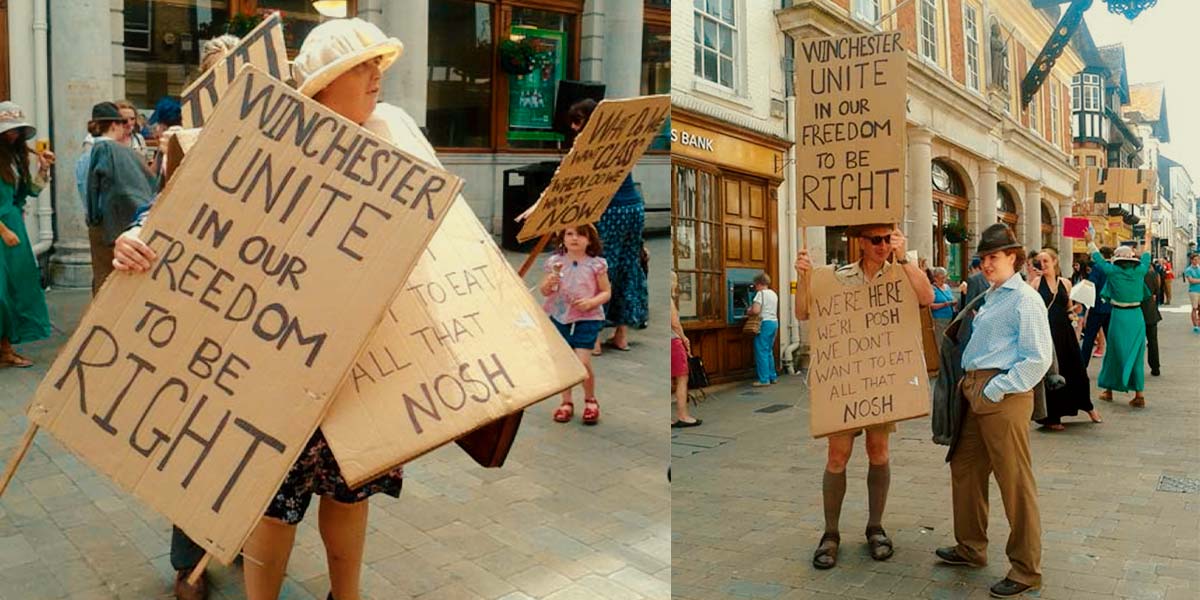 WINCHESTER
UNITE
IN OUR
FREEDOM
TO BE
RIGHT
TO EAT
ALL THAT
NOSH
WHAT DO WE
WANT CLASS
WHEN DO WE
WANT IT
NOW!
S BANK
WINCHESTER
UNITE
IN OUR
FREEDOM
TO BE
RIGHT
WE'RE HERE
WE'RE POSH
WE DON'T
WANT TO EAT
ALL THAT
NOSH